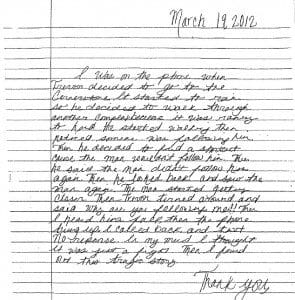 March 19, 2012
I was on the phone when
decided to go to the
Cornerstore. It started to rain
so he decided to walk through
another complex because it was raining
to hard. He started walking then
noticed someone was following him.
Then he decided to find a shortcut
cause the man wouldn't follow him. Then
he said the man didn't follow him
again. Then he looked back and saw the
man again. The man started getting
closer. Then turned around and
said Why are you following me!! Then
I heard him fall then the phone
hung up. I called back and text
No response. In my mind I thought
it was just a fight. Then I found
out this tragic story.
Thank you